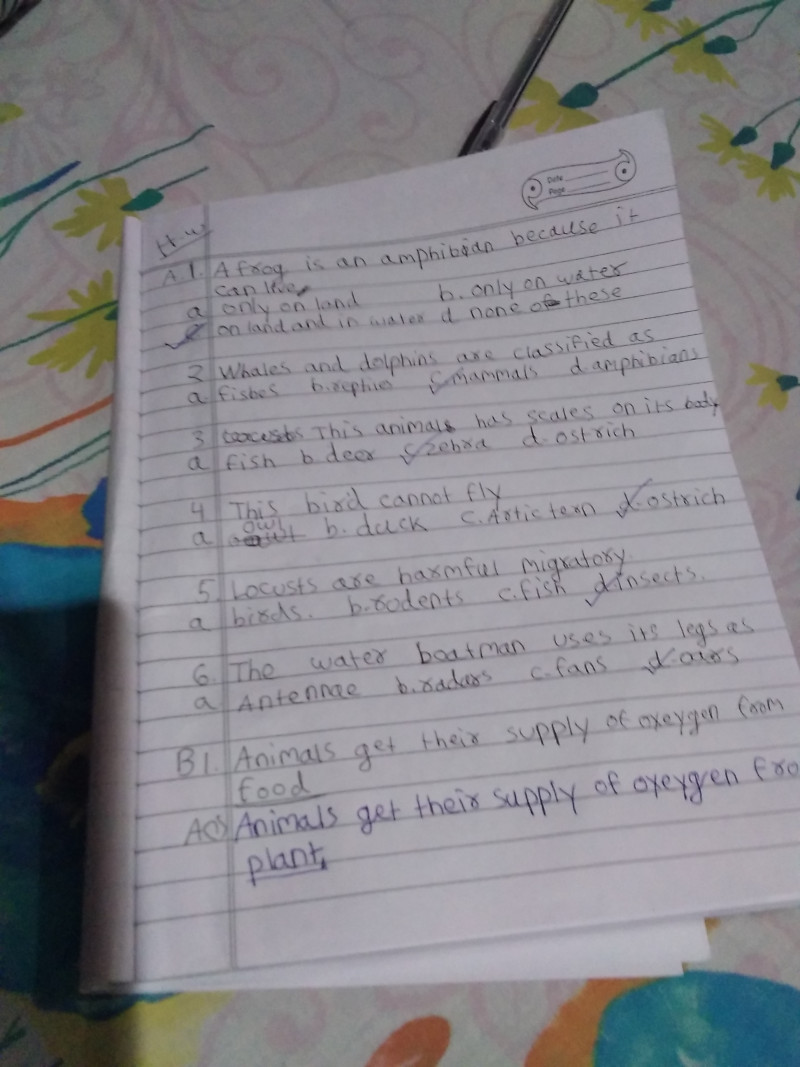 Date
Page
H.W
A 1. A frog is an amphibian because it
can live
a only on land b. only on water
c on land and in water d none of these
2 Whales and dolphins are classified as
a fishes b. reptiles c mammals d amphibians
3 This animals has scales on its body
a fish b deer c zebra d. ostrich
4 This bird cannot fly
a owl b. duck c. Artic tern d. ostrich
5 Locusts are harmful migratory
a birds. b. rodents c. fish d insects.
6. The water boatman uses its legs as
a Antennae b. radars c. fans d. oars
B 1. Animals get their supply of oxeygen from
food
Animals get their supply of oxeygren fro
plant.